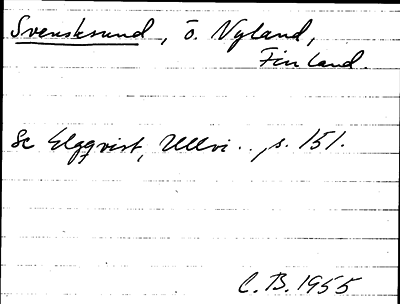 Svensksund, ö. Nyland,
Finland.
Se Elgqvist, Ullvi.. s. 151.
C.B. 1955